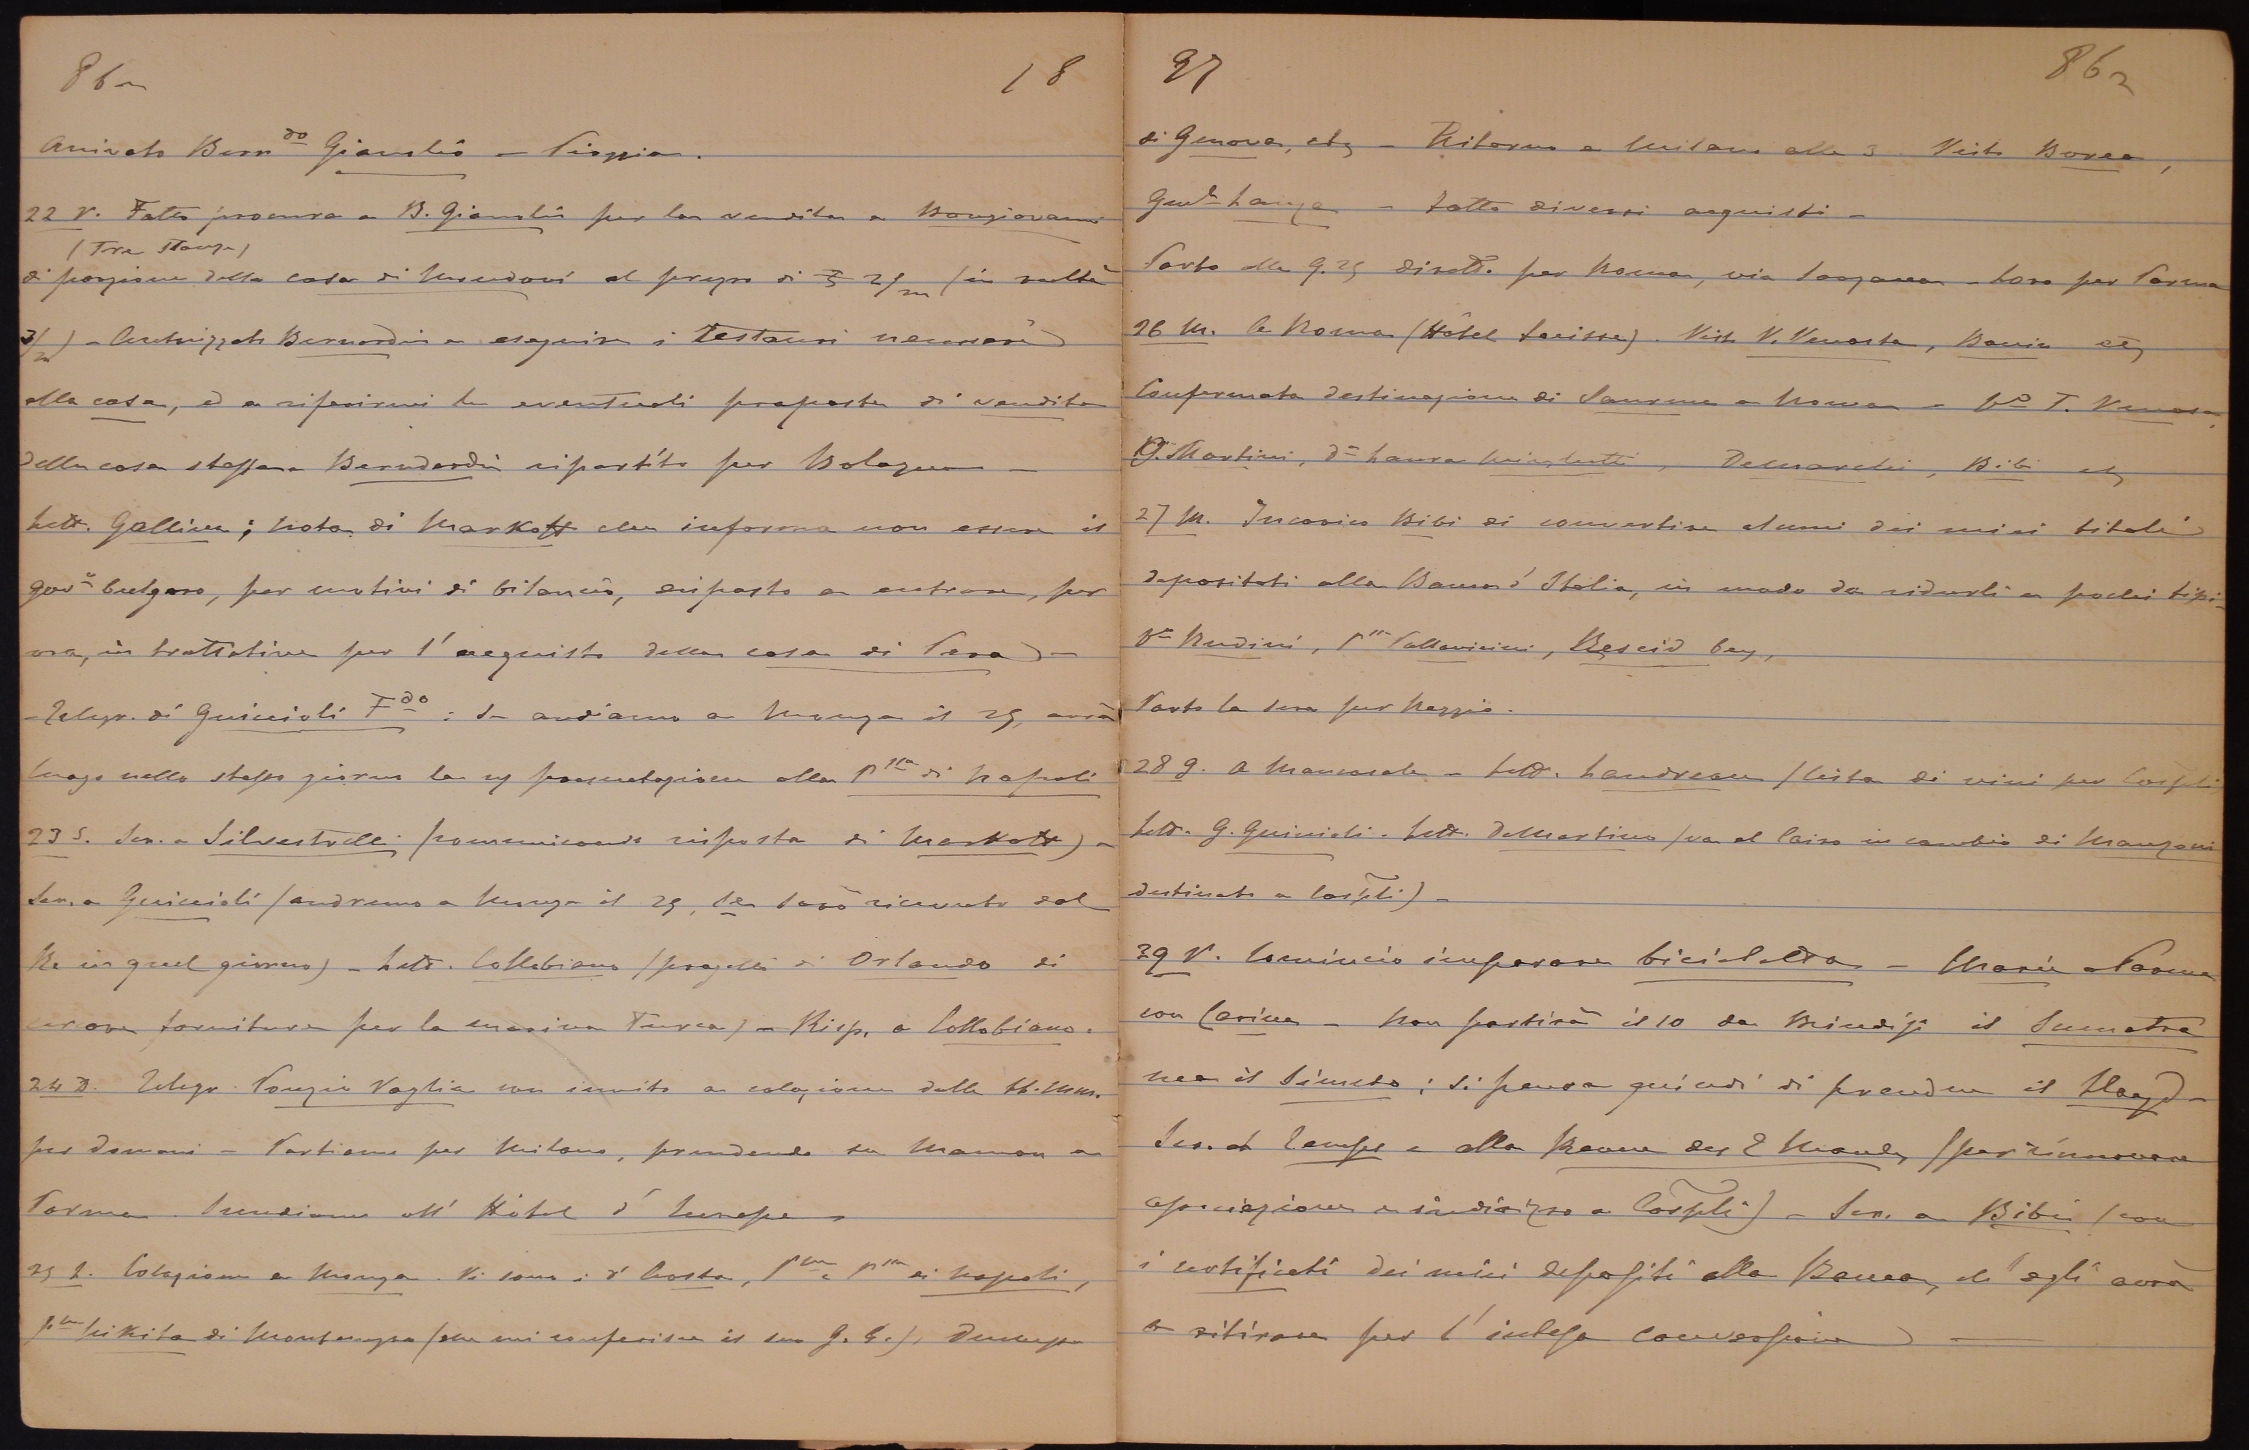 86 18
Arrivato Bern.do Gianolio – Pioggia.
22 V. Fatto procura a B. Gianolio per la vendita a Bongiovanni
(Tre stanze)
di porzione della casa di Mondovì al prezzo di 2/m (in realtà
3/m) – Autorizzato Bernardin a eseguire i restauri necessari
alla casa, ed a riferirmi le eventuali proposte di vendita
della casa stessa – Bernardin ripartito per Bologna –
Lett. Gallina; nota di Markoff che informa non essere il
gov.o bulgaro, per motivi di bilancio, disposto a entrare, per
ora, in trattative per l'acquisto della casa di Pera) –
– Telegr. di Guiccioli F.do : Se andiamo a Monza il 25, avrà
luogo nello stesso giorno la presentazione alla P.ssa di Napoli
23 S. Scr. a Silvestrelli (comunicando risposta di Markoff) –
Scr. a Guiccioli (andremo a Monza il 25, se sarò ricevuto dal
Re in quel giorno) – Lett. Collobiano (progetti di Orlando di
forniture per la marina Turca) – Risp. a Collobiano.
24 D. Telegr. Ponzio Vaglia con invito a colazione dalle LL. MM.
per domani – Partiamo per Milano, prendendo su Maman a
Parma. Scendiamo all' Hôtel d'Europe –
25 L. Colazione a Monza. Vi sono: d'Aosta, P.pe e P.ssa di Napoli,
P.pe Nikita di Montenegro (che mi conferisce il suo G. C.), Duchessa
37 86
di Genova, etc – Ritorno a Milano alle 3. Visto Borea,
Gen.le Lanza – Fatto diversi acquisti –
Parto alle 9.25 dirett.o per Roma, via Sarzana – Loro per Parma
26 M. A Roma (Hôtel Suisse). Visti V. Venosta, etc
Confermata destinazione di Saurma a Roma – T. Venosa,
F. Martini, d.a Laura Minghetti, Demarchi, Bibi etc
27 M. Incarico Bibi di convertire alcuni dei miei titoli
depositati alla Banca d'Italia, in modo da ridurli a pochi tipi –
Rudinì, P.ssa Pallavicini, Rescid bey,
Parto la sera per Reggio.
28 G. A Mancasale – Lett. Landreau (lista di vini per Cospli
Lett. G. Guiccioli. Lett. DeMartino (va al Cairo in cambio di Manzoni
destinato a Cospli) –
29 V. Comincio imparare bicicletta – Maria a Parma
con Carina – Non partirà il 10 da Brindisi il Sumatra
nea il Simeto; si pensa quindi di prendere il Lloyd –
Scr. al Temps e alla Revue des 2 Mondes (per rinnovare
associazione e indirizzo a Cospli) – Scr. a Bibi (con
i certificati dei miei depositi alla Banca, ch'egli avrà
a ritirare per l'intesa conversione) –